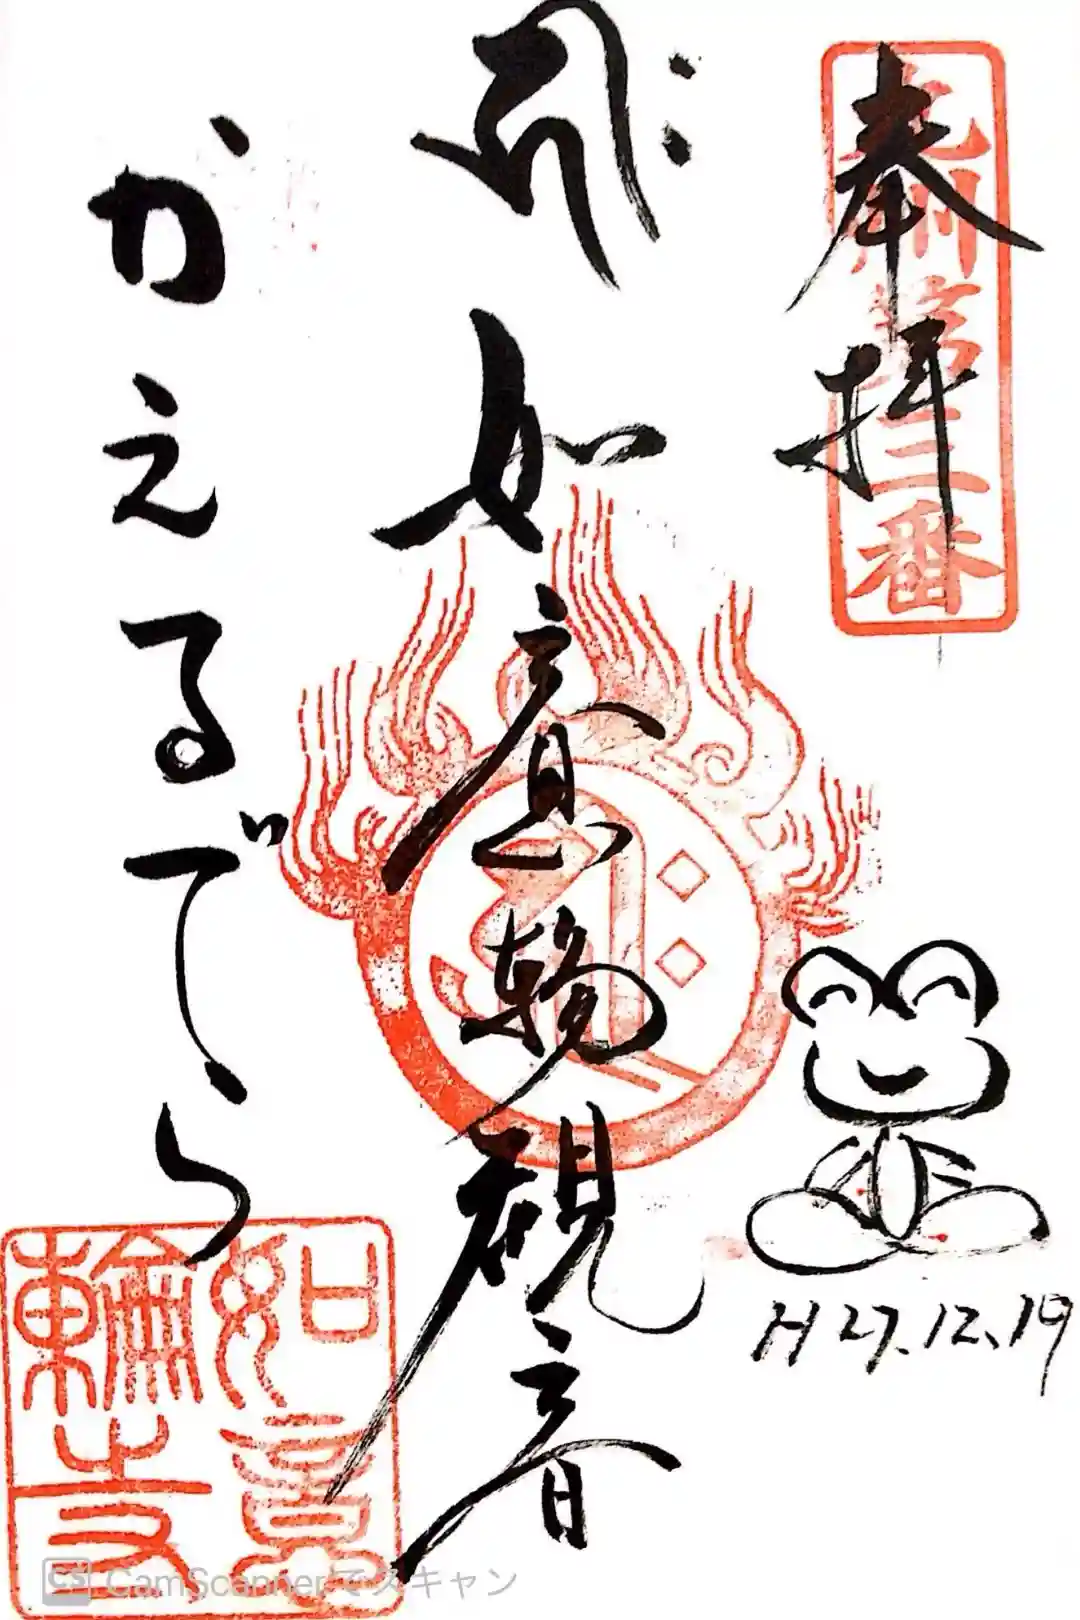 奉拝
九州第三番
如意輪観音
かえるでら
H27.12.19
如意輪寺
CS CamScannerでスキャン